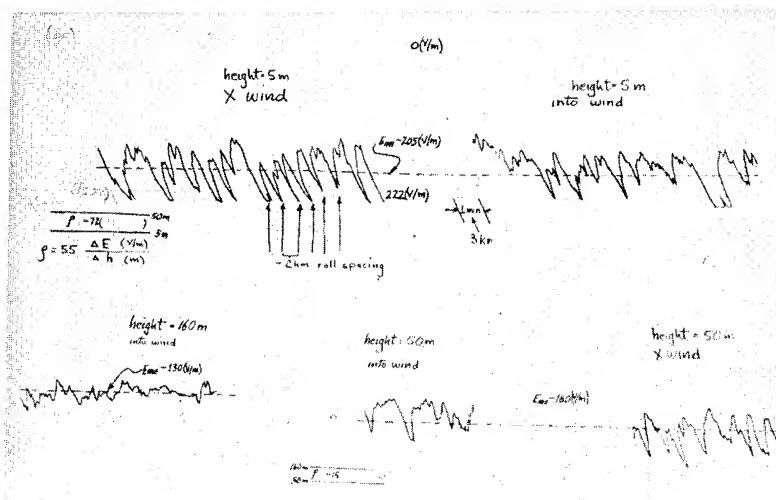 0(V/m)
height = 5m
X wind
height = 5m
into wind
Em ~205(V/m)
222(V/m)
1 min
3 km
ρ -72( ) 50m
5m
ρ = 55 ΔE (V/m)
Δh (m)
~2km roll spacing
height = 160m
into wind
Em ~130(V/m)
height = 50m
into wind
Em ~160(V/m)
height = 50m
X wind
160m
50m ρ -15